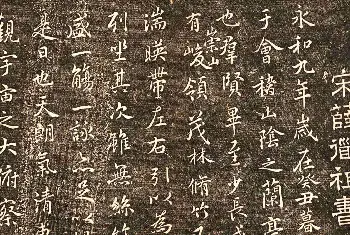 宋薛道祖書
永和九年歲在癸丑暮
于會稽山陰之蘭亭
也羣賢畢至少長咸
有崇山峻領茂林脩竹又
湍暎帶左右引以為
列坐其次雖無絲竹
盛一觴一詠亦足以
是日也天朗氣清惠
觀宇宙之大俯察